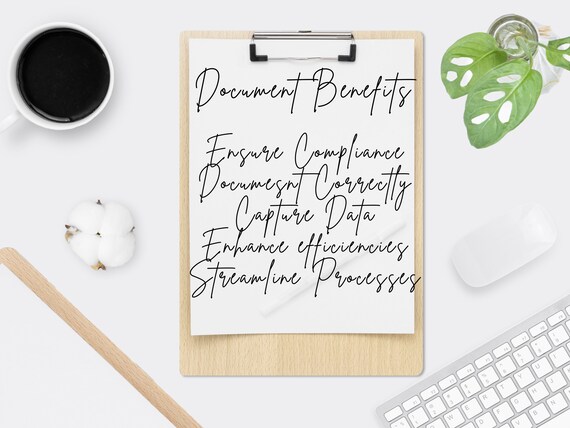 Document Benefits
Ensure Compliance
Documesnt Correctly
Capture Data
Enhance efficiencies
Streamline Processes